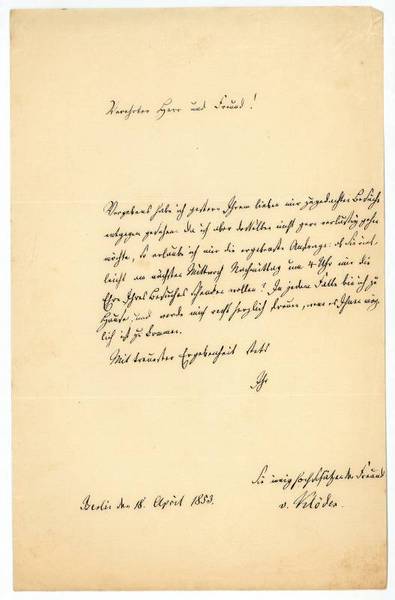 Verehrter Herr und Freund!
Vergebens habe ich gestern Ihrem lieben mir zugedachten Besuche
entgegen gesehen. Da ich aber desselben nicht gern verlustig gehen
möchte, so erlaube ich mir die ergebenste Anfrage: ob Sie viel,
leicht am nächsten Mittwoch Nachmittag um 4 Uhr mir die
Ehre Ihres Besuches schenken wollen? In jedem Falle bin ich zu
Hause, und werde mich recht herzlich freuen, wenn es Ihnen mög,
lich ist zu kommen.
Mit treuester Ergebenheit stets
Ihr
Sie innig hochschätzender Freund
Berlin den 18. April 1853.
v.